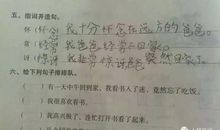 五、组词并造句。
怀(怀念)我十分怀念在远方的爸爸。
常(经常)我爸爸经常不回家。
讶(惊讶)我非常惊讶爸爸突然回家了。
六、给下列句子排排队。
( )有一天中午回到家,我看书入了迷,竟然忘记了吃饭。
( )我很喜欢看书。
( )我高兴极了,连忙打开书看了起来。